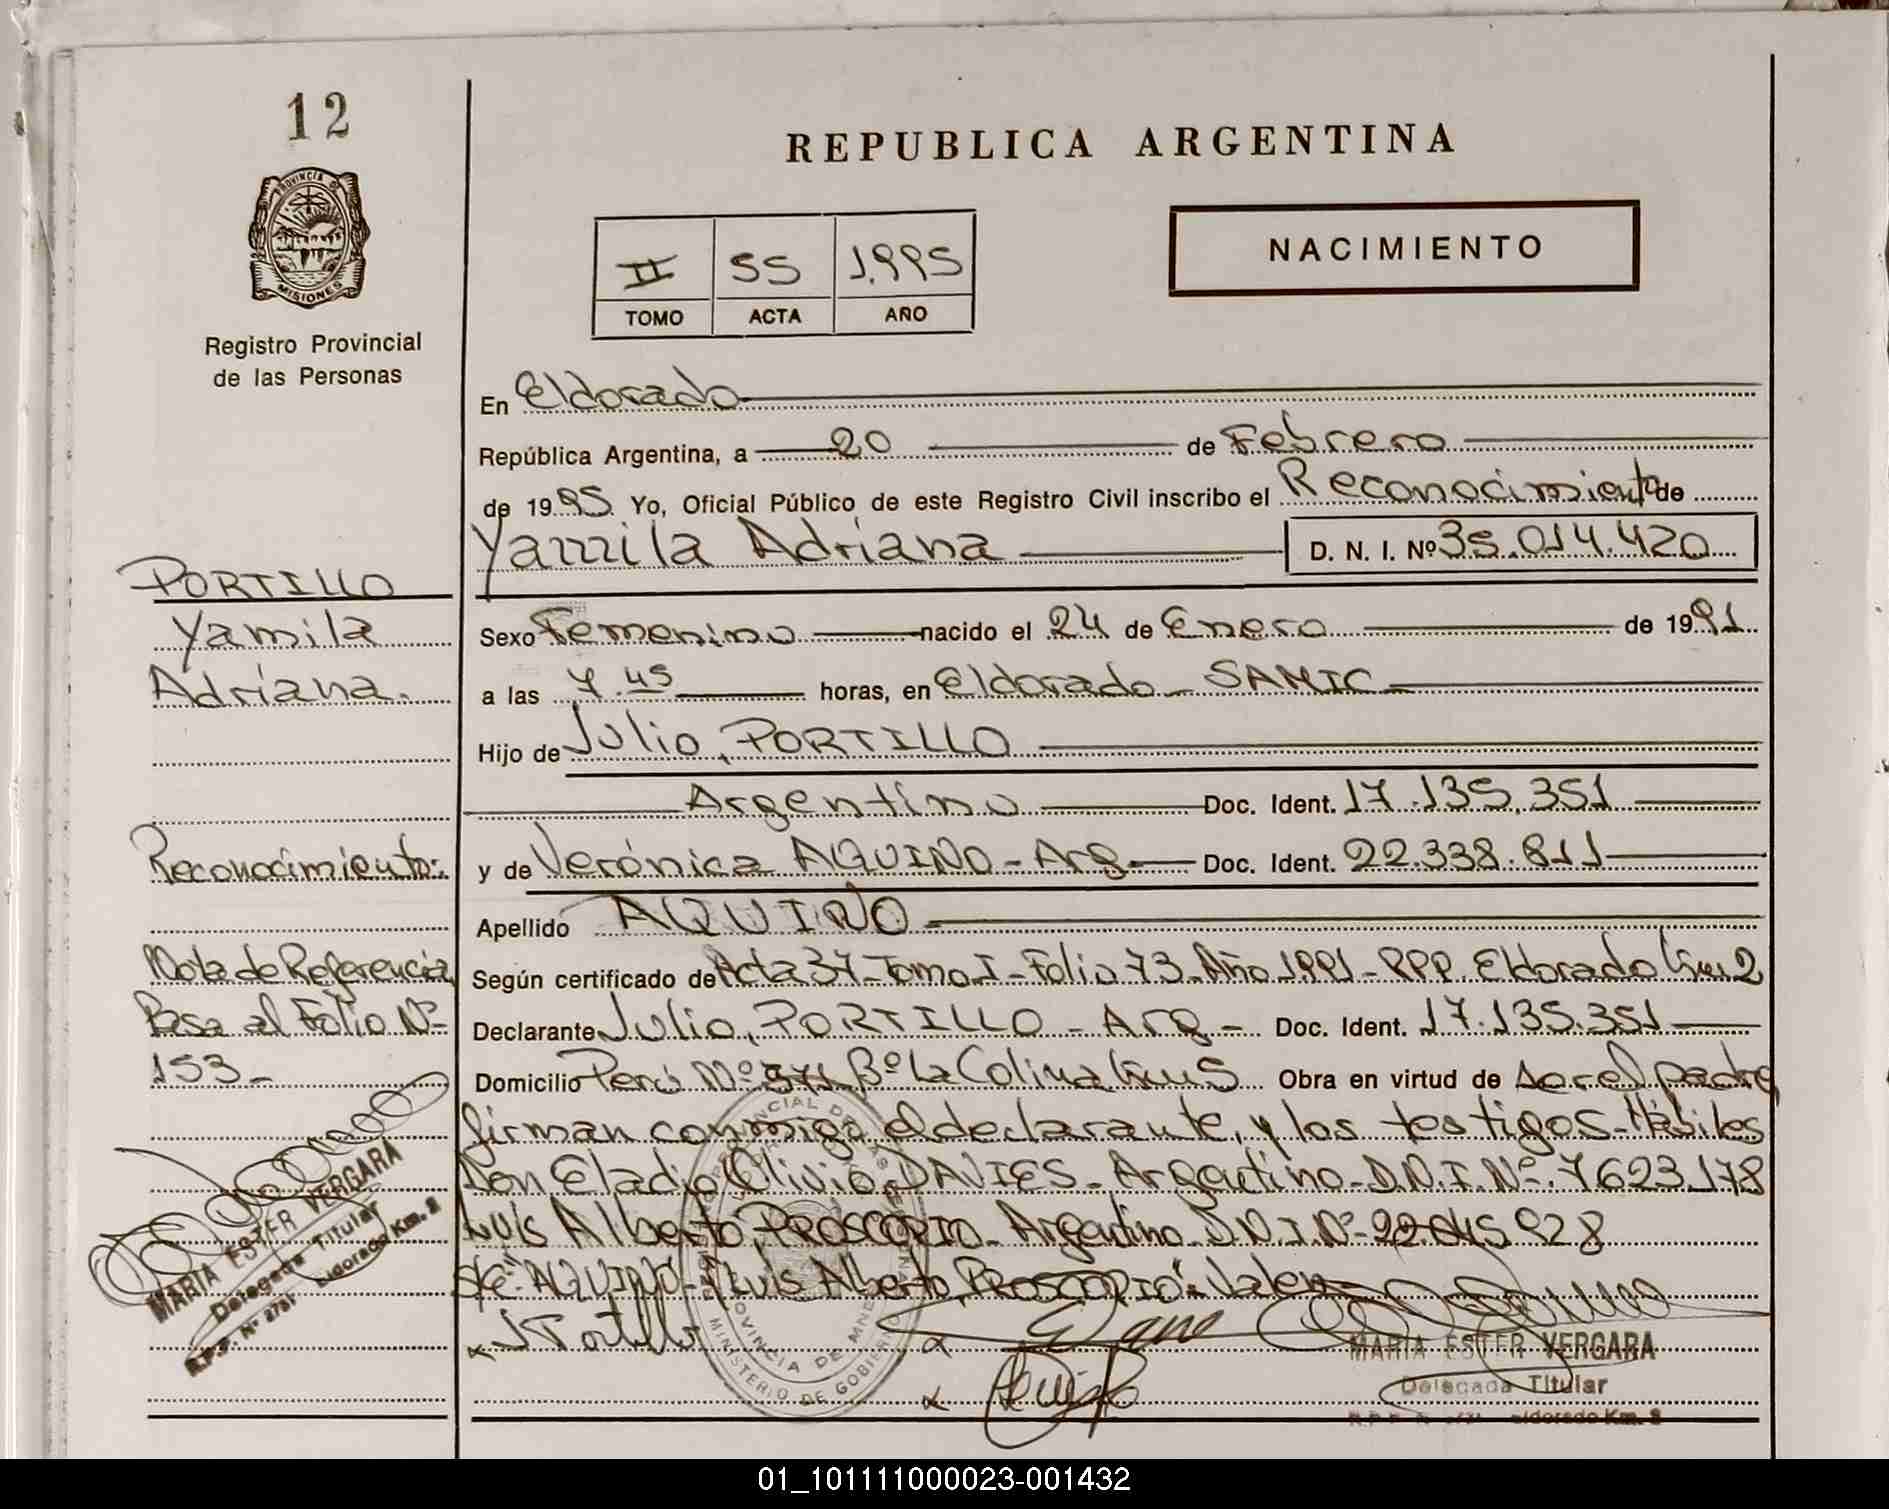 12
REPUBLICA ARGENTINA
PROVINCIA DE
MISIONES
Registro Provincial
de las Personas
II 55 1.995
TOMO ACTA AÑO
NACIMIENTO
En Eldorado
República Argentina, a 20 de Febrero
de 1995 Yo, Oficial Público de este Registro Civil inscribo el Reconocimiento de
Yamila Adriana D. N. I. Nº 35.014.420
PORTILLO
Yamila
Adriana.
Sexo Femenino nacido el 24 de Enero de 1991
a las 7.45 horas, en Eldorado - SAMIC
Hijo de Julio, PORTILLO
Argentino Doc. Ident. 17.135.351
y de Verónica AQUINO - Arg Doc. Ident. 22.338.811
Apellido AQUINO
Reconocimiento:
Nota de Referencia
Pasa al Folio Nº
153-
Según certificado de Acta 37 - Tomo I - Folio 73 - Año 1991 - RPP. Eldorado Km 2
Declarante Julio, PORTILLO - Arg - Doc. Ident. 17.135.351
Domicilio Perú Nº Bº La Colina Km 5 Obra en virtud de ser el padre
firman conmigo, el declarante, y los testigos Hábiles
Don Eladio Olivio DAVIES - Argentino - D.N.I. Nº. 7623.178
Luis Alberto, PROSCOPIO - Argentino D.N.I. Nº 928
"AQUINO" - "Luis Alberto, PROSCOPIO" - Valen
J Portillo
MARIA ESTER VERGARA
Delegada Titular
Eldorado Km. 2
MARIA ESTER VERGARA
Delegada Titular
R.P.P. Nº Eldorado Km. 2
PROVINCIA DE MISIONES
MINISTERIO DE GOBIERNO
01_101111000023-001432